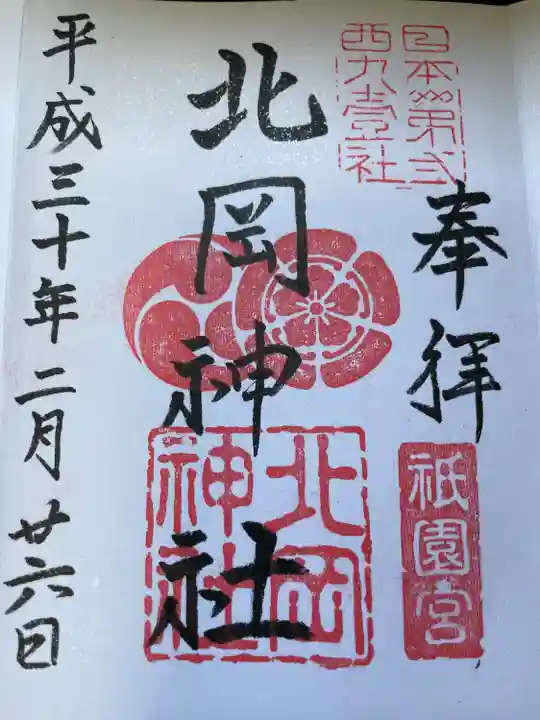 日本第弐
西九壹社
奉拝
祇園宮
北岡神社
北岡
神社
平成三十年二月廿六日